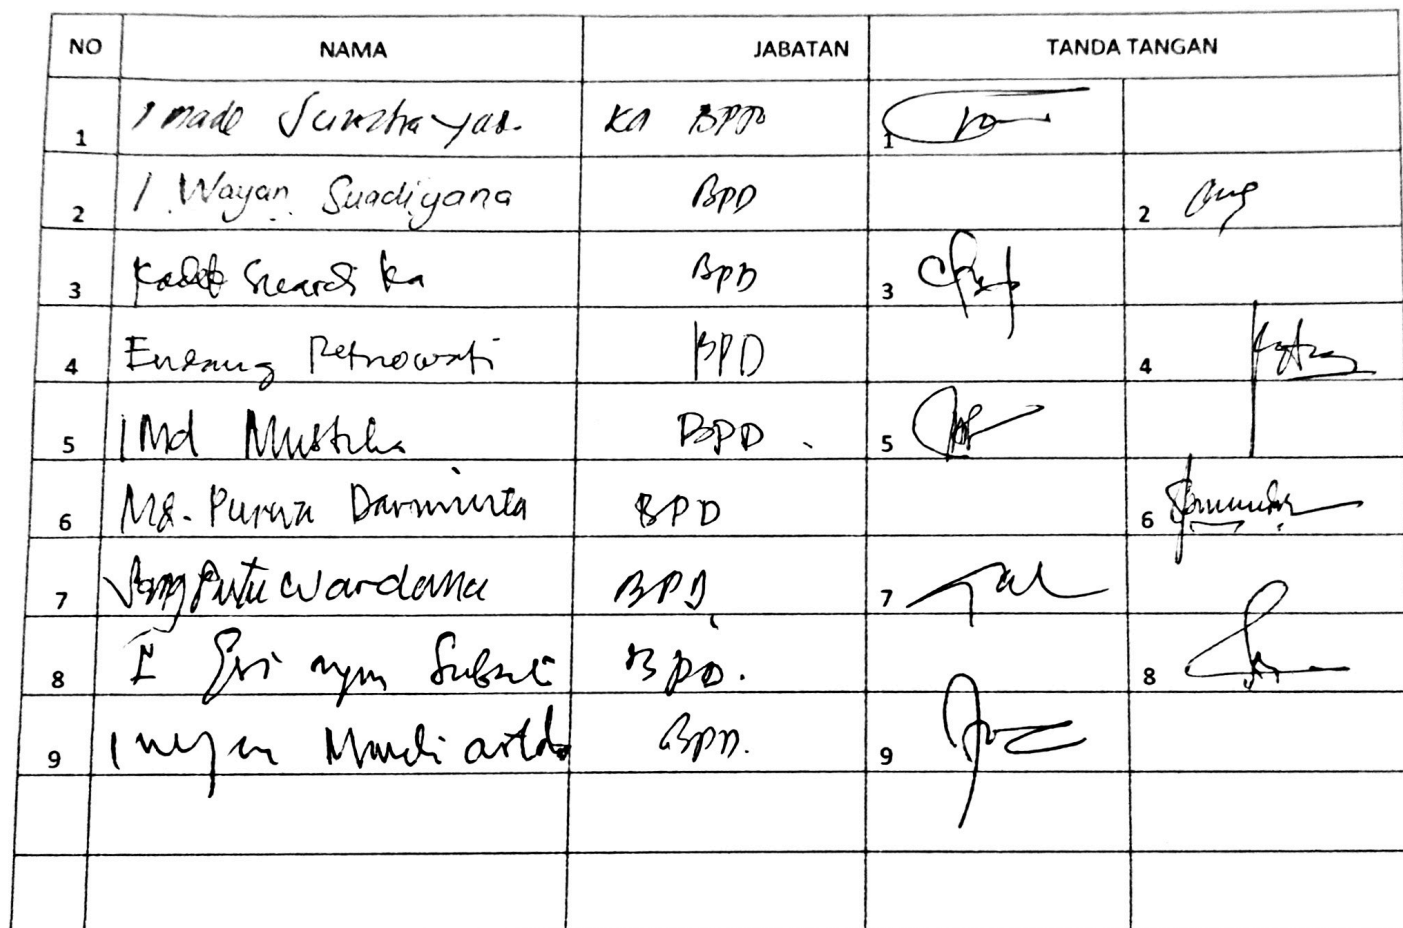 NO NAMA JABATAN TANDA TANGAN
1 I made KA BPD 1
2 I Wayan Suadiyana BPD 2
3 Kadek Suardika BPD 3
4 Endang Retnowati BPD 4
5 I Md Mustika BPD 5
6 Md. Purwa Darminta BPD 6
7 Sang Putu Wardana BPD 7
8 I nym BPD. 8
9 I BPD. 9